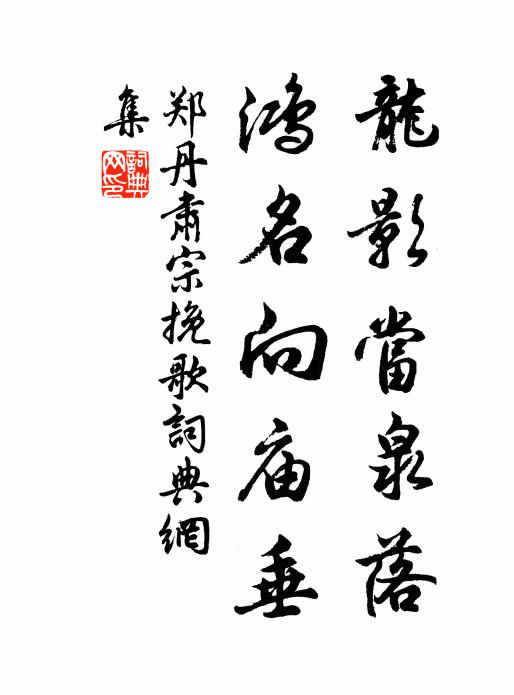 龍影當泉落
鴻名向庙垂
郑丹肃宗挽歌詞典網
集
詞典
网印